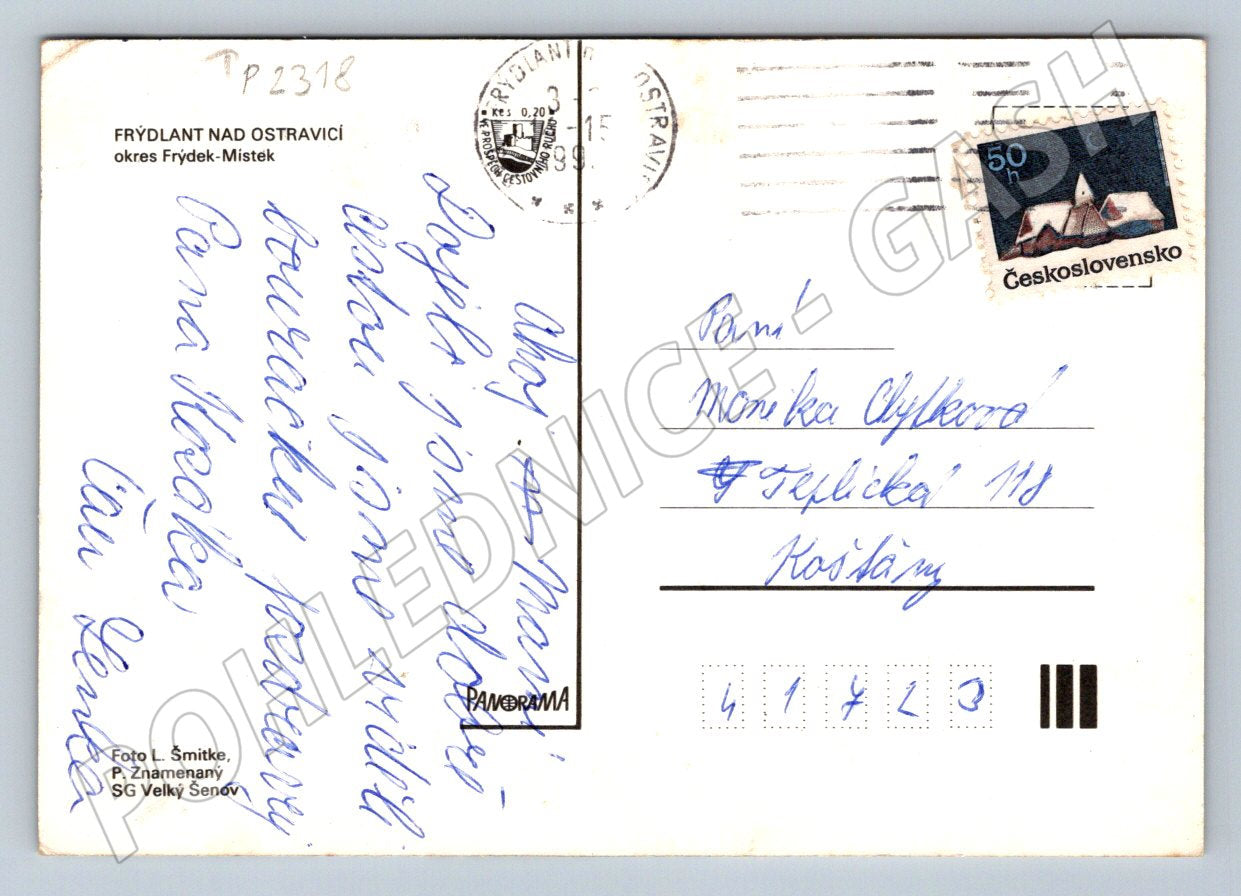 P2318
FRÝDLANT NAD OSTRAVICÍ
okres Frýdek-Místek
FRÝDLANT N OSTRAVIC
Kčs 0,20
VE PROSPĚCH CESTOVNÍHO RUCHU
50
h
Československo
Ahoj Moni
Dojeli jsme dobře
cestou jsme viděli
bouračku pozdravuj
Pana
Čau Lenka
Paní
Monika
Teplická 118
Košťány
41723
PANORAMA
Foto L. Šmitke,
P. Znamenaný
SG Velký Šenov
POHLEDNICE - GASH